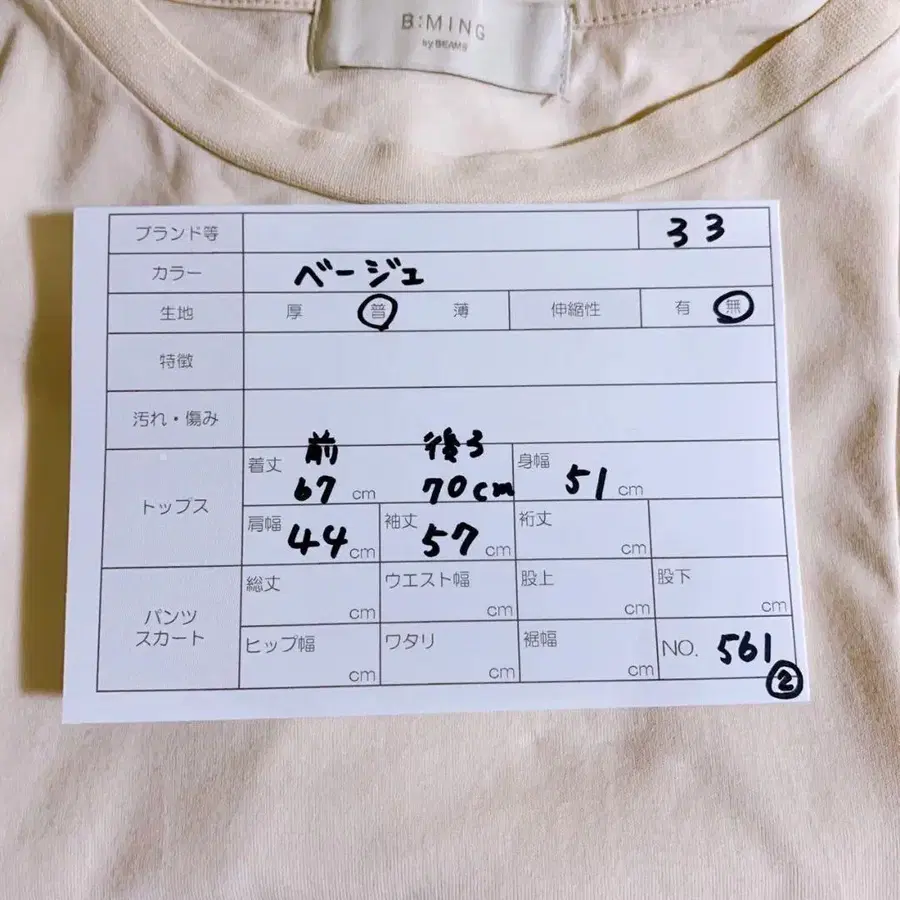 B:MING
by BEAMS
ブランド等 33
カラー ベージュ
生地 厚 普 薄 伸縮性 有 無
特徴
汚れ・傷み
トップス 着丈 前 67 cm 後ろ 70cm 身幅 51 cm
肩幅 44 cm 袖丈 57 cm 裄丈 cm
パンツ スカート 総丈 cm ウエスト幅 cm 股上 cm 股下 cm
ヒップ幅 cm ワタリ cm 裾幅 cm NO. 561
②